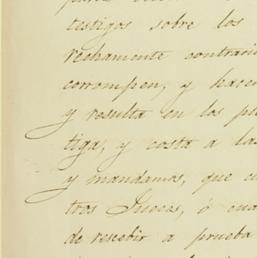 testigos sobre los
rechamente contrari
corrompen; y hacen
y resulta en los p
tiga, y costa a la
y mandamos, que
tros Jueces, ó
de rescebir a prueba